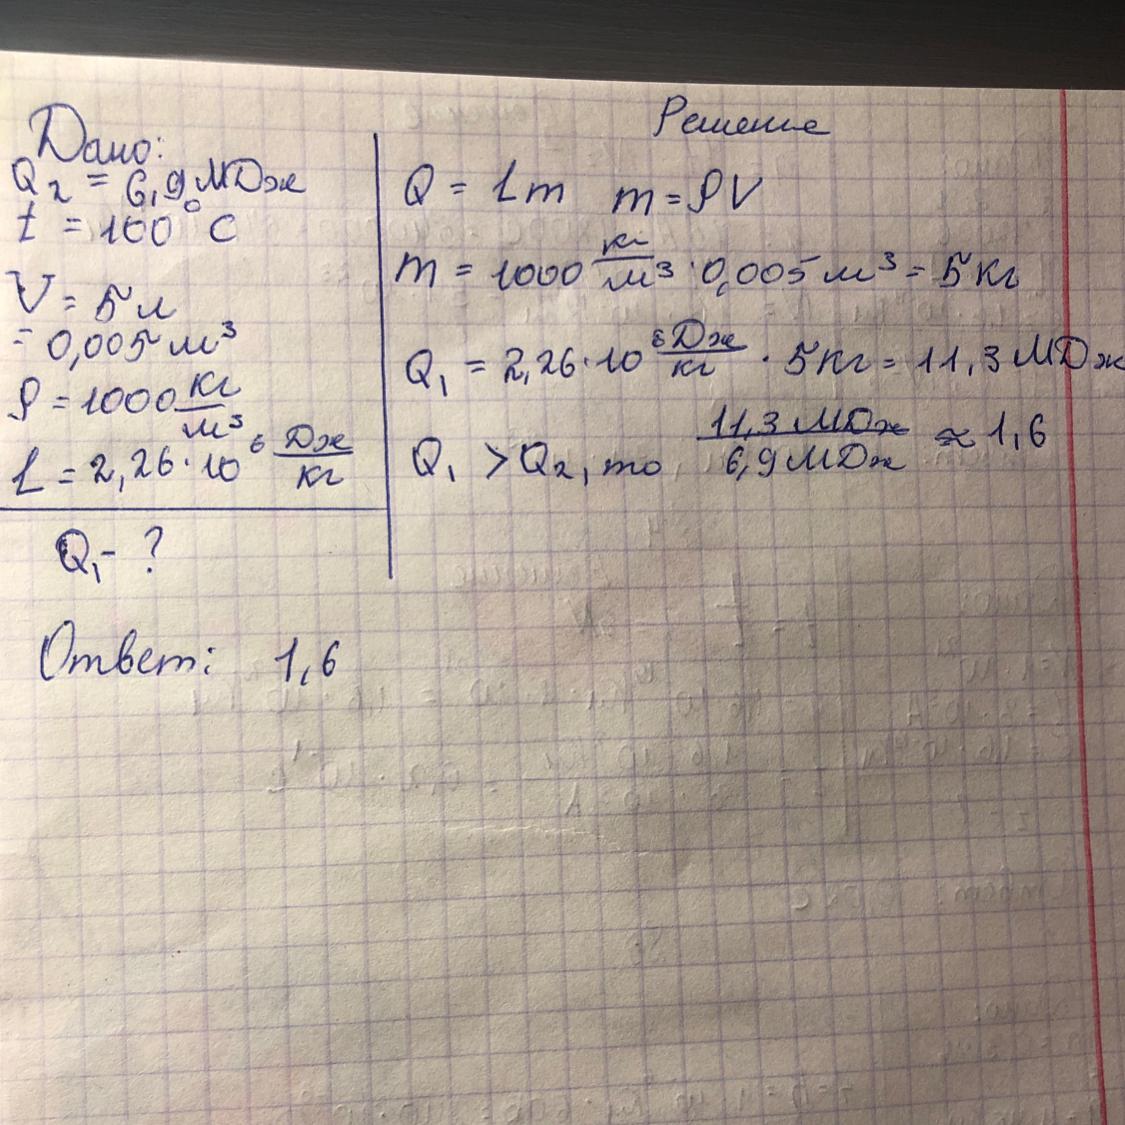 Дано:
Q₂ = 6,9 МДж
t = 100° C
V = 5 л
= 0,005 м³
ρ = 1000 кг/м³
L = 2,26·10⁶ Дж/кг
Q₁ - ?
Решение
Q = Lm m = ρV
m = 1000 кг/м³ · 0,005 м³ = 5 кг
Q₁ = 2,26·10⁶ Дж/кг · 5 кг = 11,3 МДж
Q₁ > Q₂, то 11,3 МДж/6,9 МДж ≈ 1,6
Ответ: 1,6